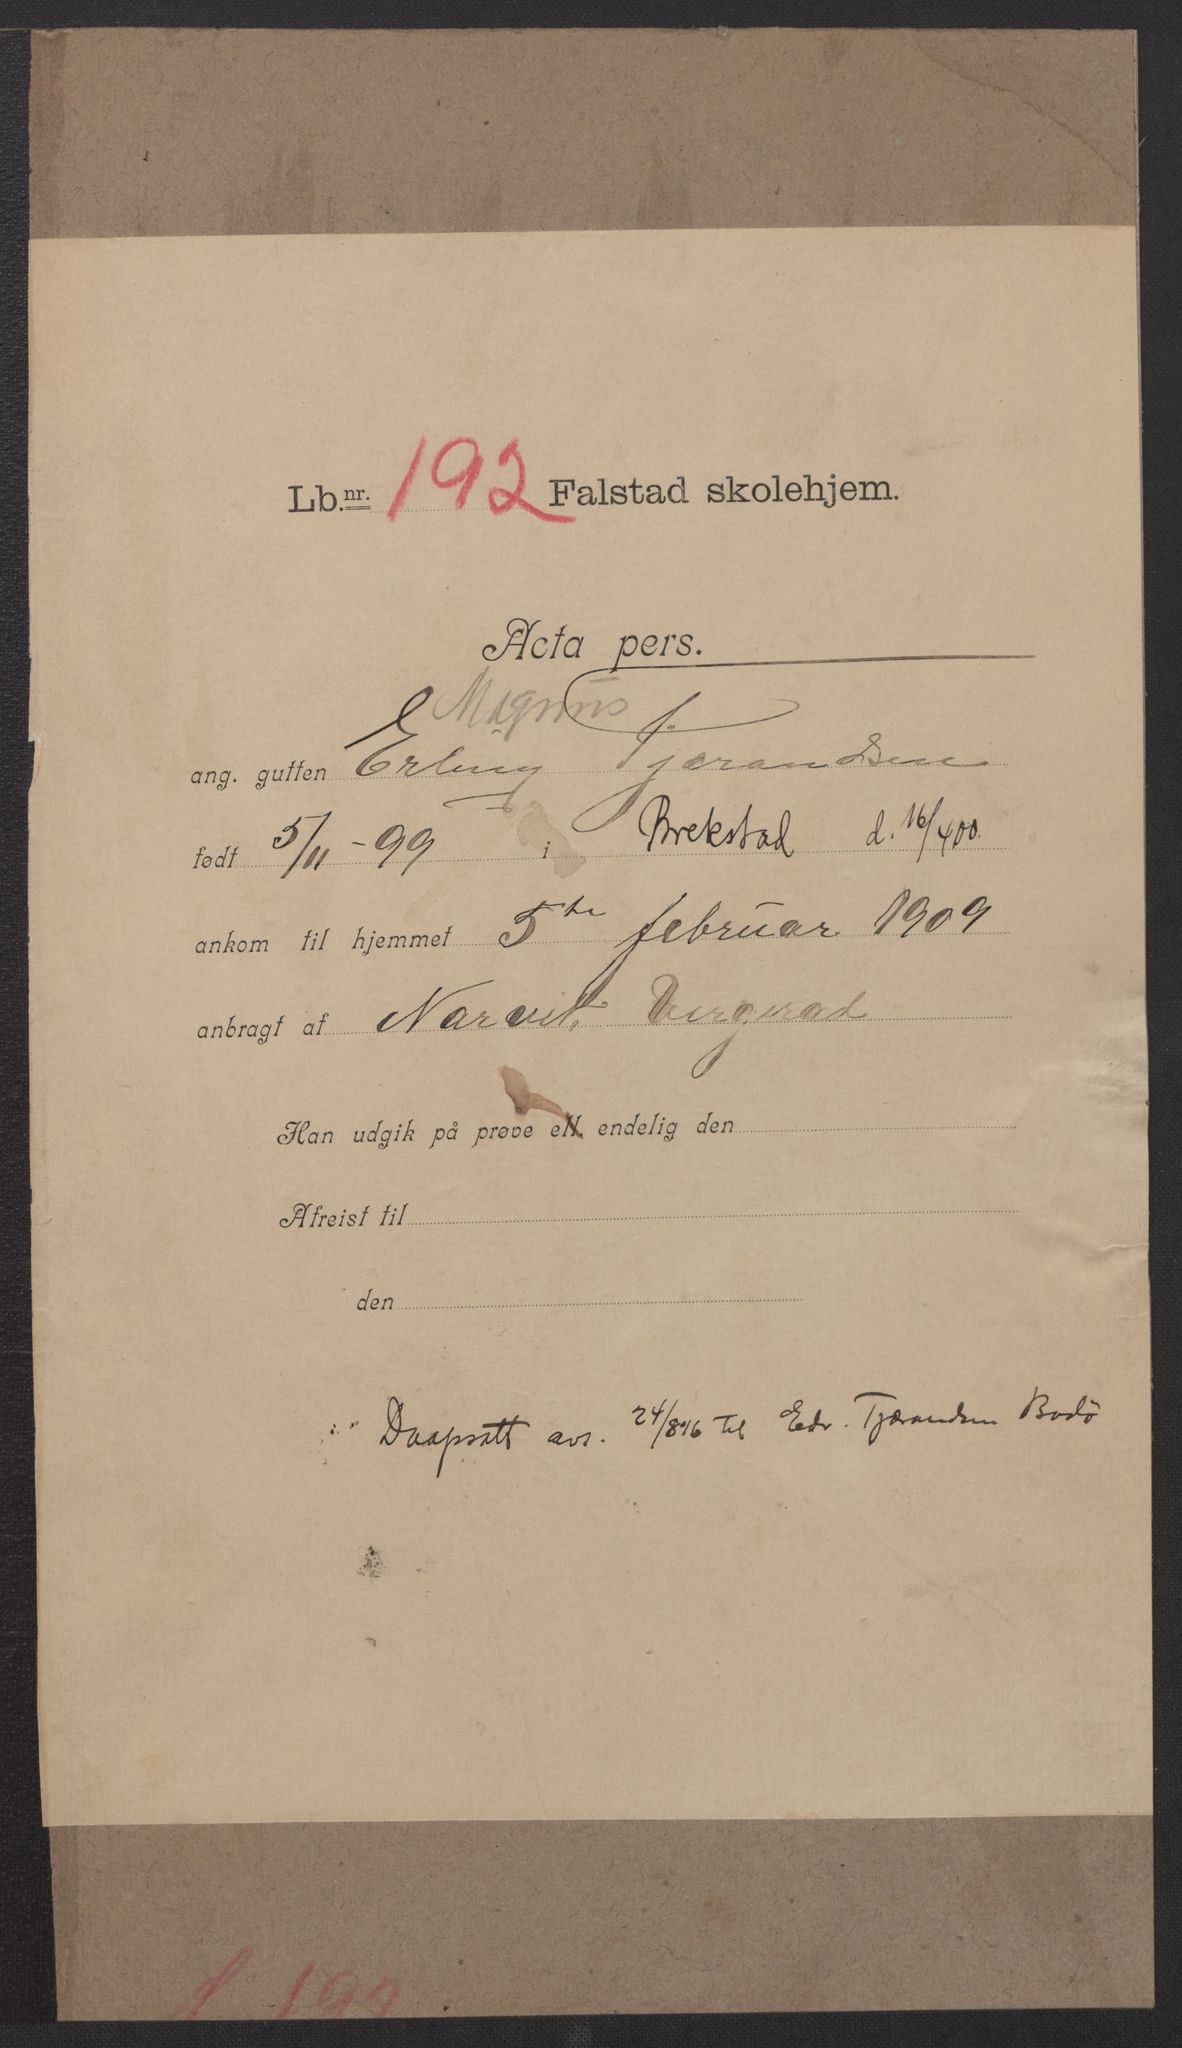 Lb.nr. 192 Falstad skolehjem.
Acta pers.
Magnus
ang. gutten Erling Tjærandsen
født 5/11 - 99 i Brekstad d. 16/4 00.
ankom til hjemmet 5te februar 1909
anbragt af Narvik Vergerad
Han udgik på prøve ell. endelig den
Afreist til
den
Daapsatt avs. 24/8 16 til Edv. Tjærandsen Bodö
192